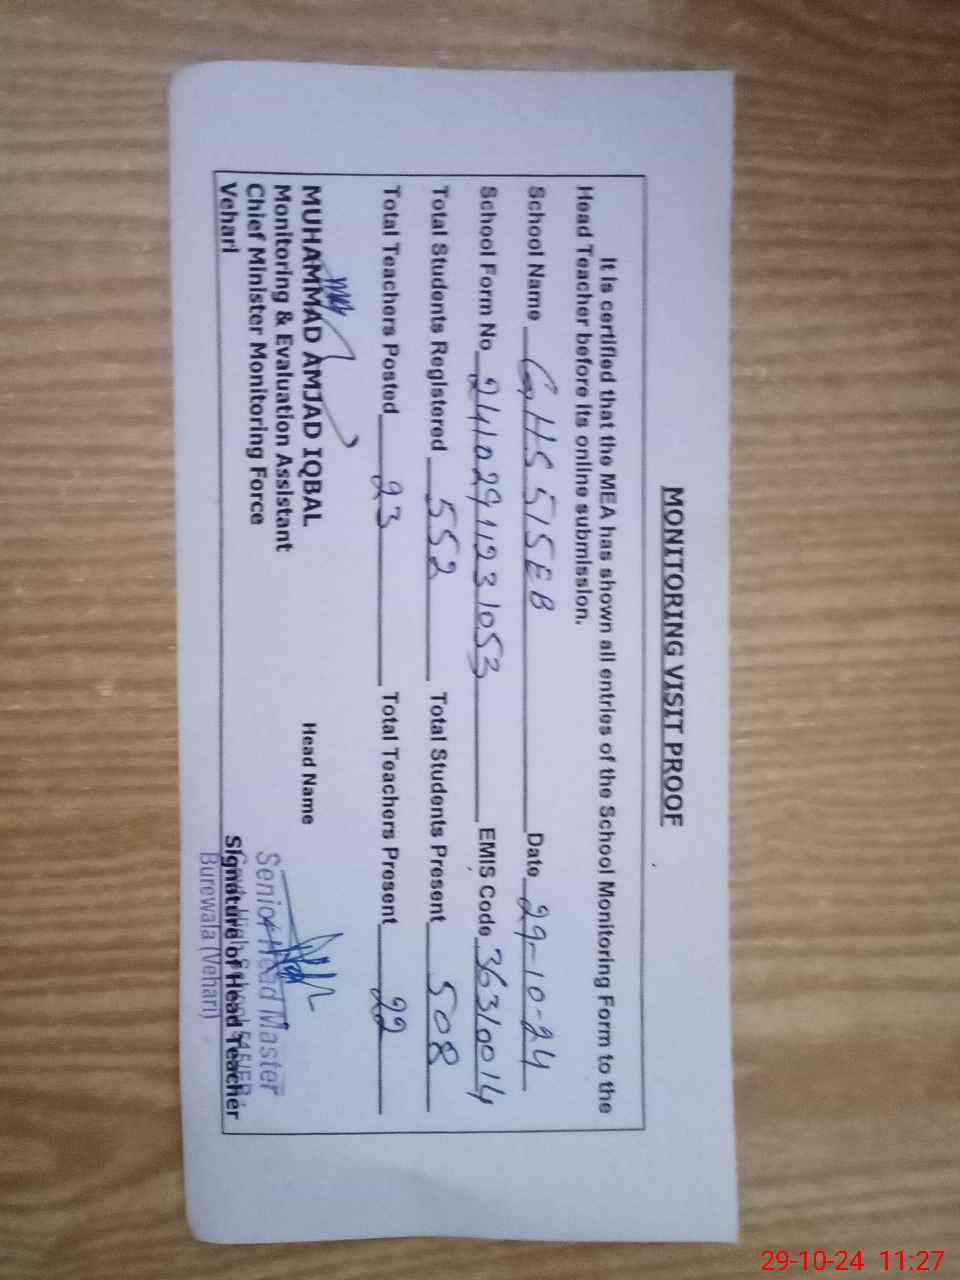 MONITORING VISIT PROOF
It is certified that the MEA has shown all entries of the School Monitoring Form to the
Head Teacher before its online submission.
School Name GHS 515EB Date 29-10-24
School Form No 24102911231053 EMIS Code 36310014
Total Students Registered 552 Total Students Present 508
Total Teachers Posted 23 Total Teachers Present 22
MUHAMMAD AMJAD IQBAL
Monitoring & Evaluation Assistant
Chief Minister Monitoring Force
Vehari
Head Name
Senior Head Master
Govt. High School 515/EB
Signature of Head Teacher
Burewala (Vehari)
29-10-24 11:27